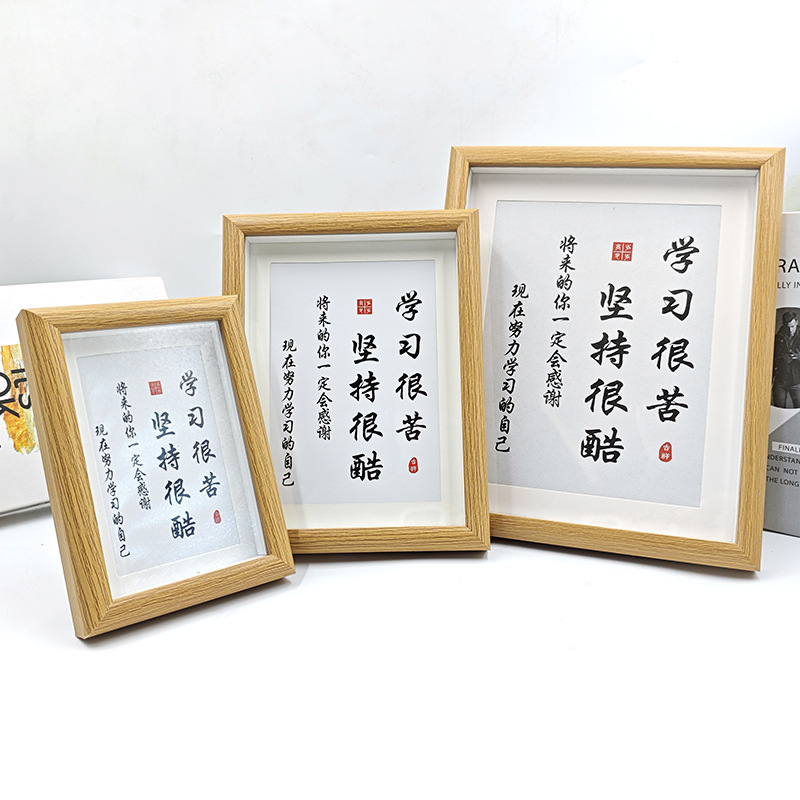 学习很苦
坚持很酷
将来的你一定会感谢
现在努力学习的自己
吉祥
学习很苦
坚持很酷
将来的你一定会感谢
现在努力学习的自己
吉祥
学习很苦
坚持很酷
将来的你一定会感谢
现在努力学习的自己
吉祥
RA
LLY IN
FINALL
NDERSTAN
CAN NOT
THE LONG